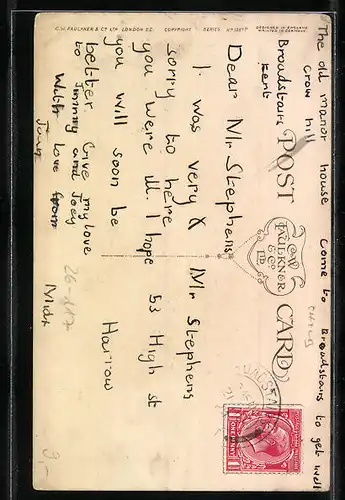 C.W. FAULKNER & Co LTD. LONDON E.C. COPYRIGHT SERIES
DESIGNED IN ENGLAND
PRINTED IN GERMANY
POST CARD
C.W. FAULKNER & Co. LTD.
The old manor house
crow hill
Broadstairs
kent
Dear Mr Stephens
I was very X
sorry to here
you were ill. I hope
you will soon be
better. Give my love
to Jimmy and Joey
With love from
Come to Broadstairs to get well
Mr Stephens
53 High st
Harrow
Midx
ONE PENNY
3,-